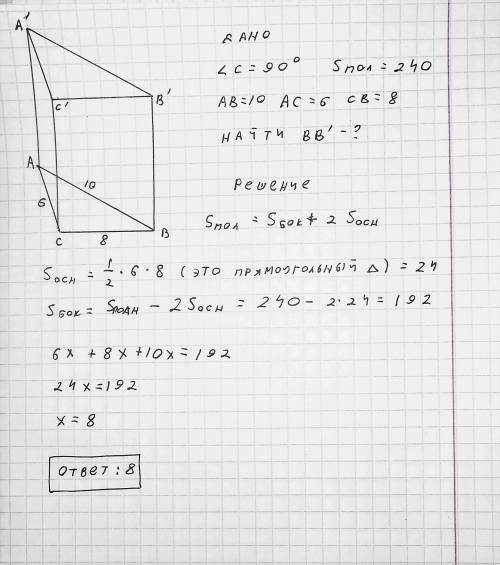 ДАНО
∠C = 90° Sпол = 240
AB=10 AC=6 CB=8
НАЙТИ BB' - ?
Решение
Sпол = Sбок + 2 Sосн
Sосн = 1/2 · 6 · 8 (это прямоугольный △) = 24
Sбок = Sполн - 2Sосн = 240 - 2·24 = 192
6x + 8x + 10x = 192
24x = 192
x = 8
Ответ: 8
A'
C'
B'
A
10
6
C
8
B